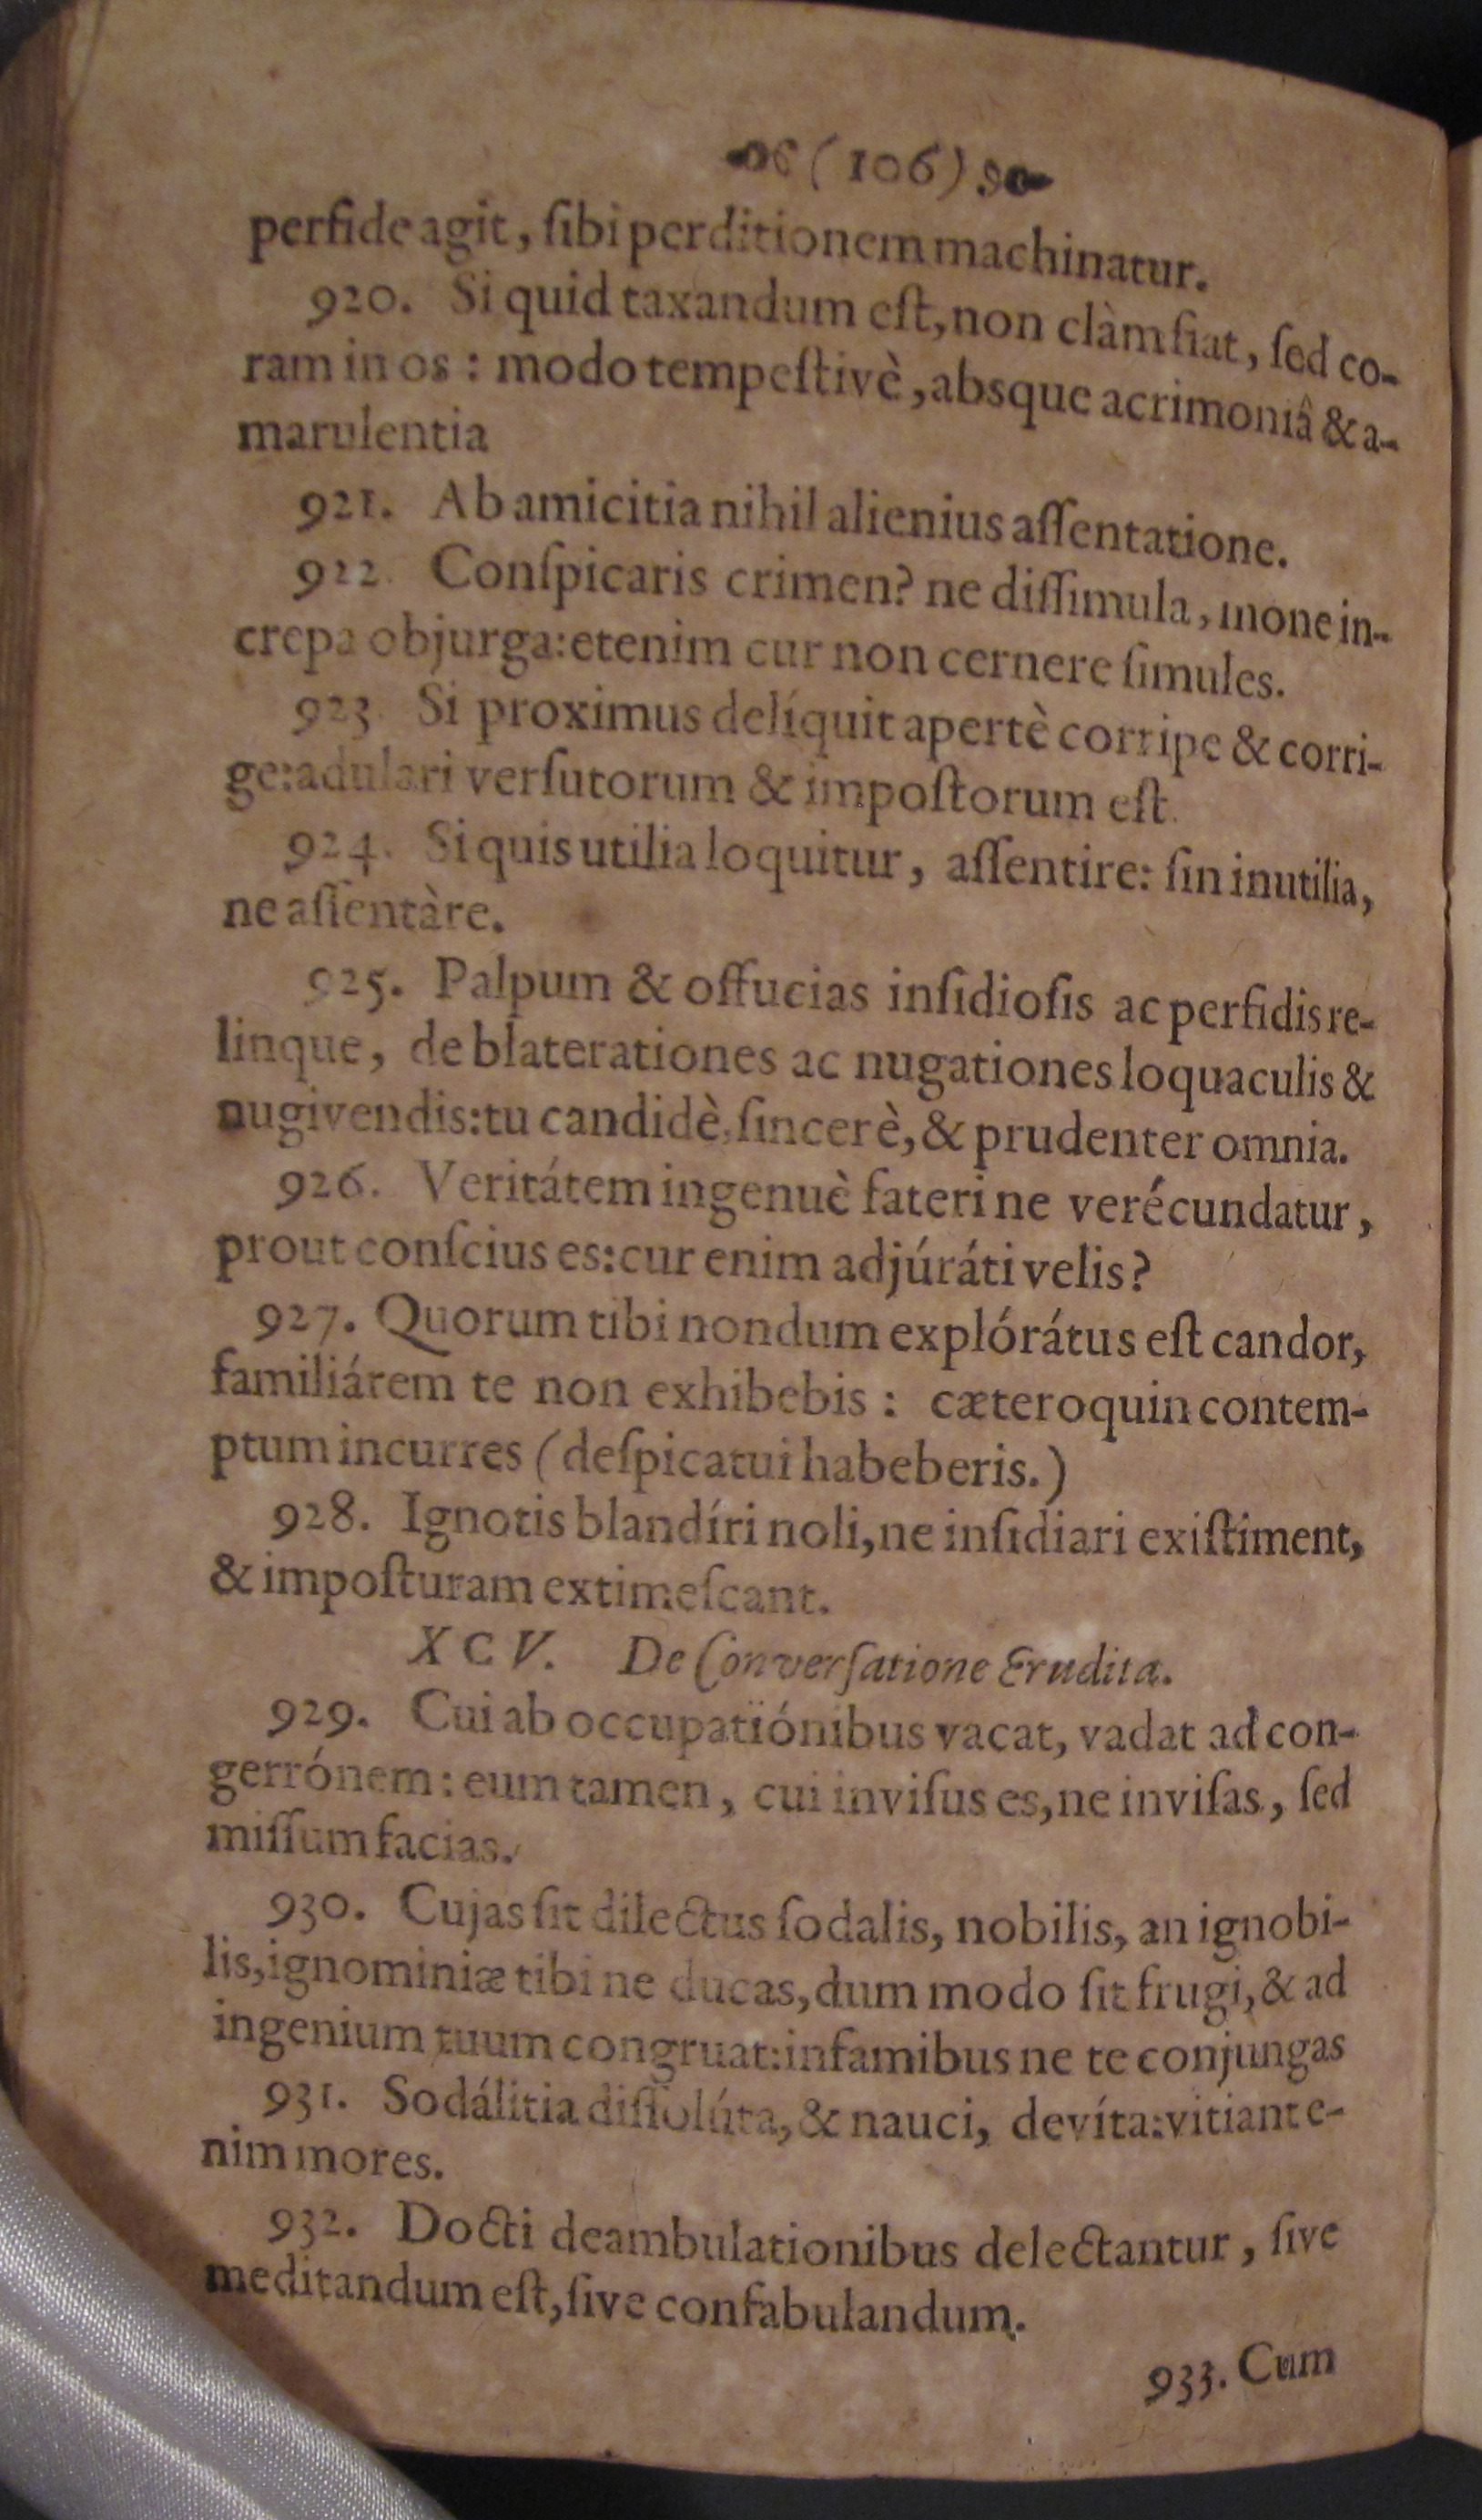 (106)
perfide agit, ſibi perditionem machinatur.
920. Si quid taxandum eſt, non clàm fiat, ſed co-
ram in os : modo tempeſtivè, absque acrimoniâ & a-
marulentia
921. Ab amicitia nihil alienius aſſentatione.
922. Conſpicaris crimen? ne diſſimula, mone in-
crepa objurga: etenim cur non cernere ſimules.
923. Si proximus delíquit apertè corripe & corri-
ge: adulari verſutorum & impoſtorum eſt.
924. Si quis utilia loquitur, aſſentire: ſin inutilia,
ne aſſentàre.
925. Palpum & offucias inſidioſis ac perfidis re-
linque, deblaterationes ac nugationes loquaculis &
nugivendis: tu candidè, ſincerè, & prudenter omnia.
926. Veritátem ingenuè fateri ne verécundatur,
prout conſcius es: cur enim adjúráti velis?
927. Quorum tibi nondum explórátus eſt candor,
familiárem te non exhibebis : cæteroquin contem-
ptum incurres (deſpicatui habeberis.)
928. Ignotis blandíri noli, ne inſidiari exiſtiment,
& impoſturam extimeſcant.
XCV. De Converſatione Erudita.
929. Cui ab occupatïónibus vacat, vadat ad con-
gerrónem : eum tamen, cui inviſus es, ne inviſas, ſed
miſſum facias.
930. Cujas ſit dilectus ſodalis, nobilis, an ignobi-
lis, ignominiæ tibi ne ducas, dum modo ſit frugi, & ad
ingenium tuum congruat: infamibus ne te conjungas
931. Sodálitia diſſolúta, & nauci, devíta: vitiant e-
nim mores.
932. Docti deambulationibus delectantur, ſive
meditandum eſt, ſive confabulandum.
933. Cum